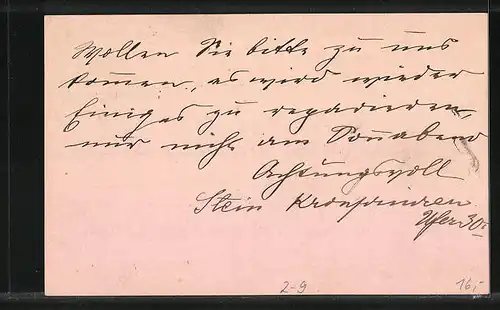 Wollen Sie bitte zu uns
kommen, es wird wieder
Einiges zu reparieren,
nur nicht am Sonnabend
Achtungsvoll
Stein Kronprinzen
Ufer 30
2-9
16,-